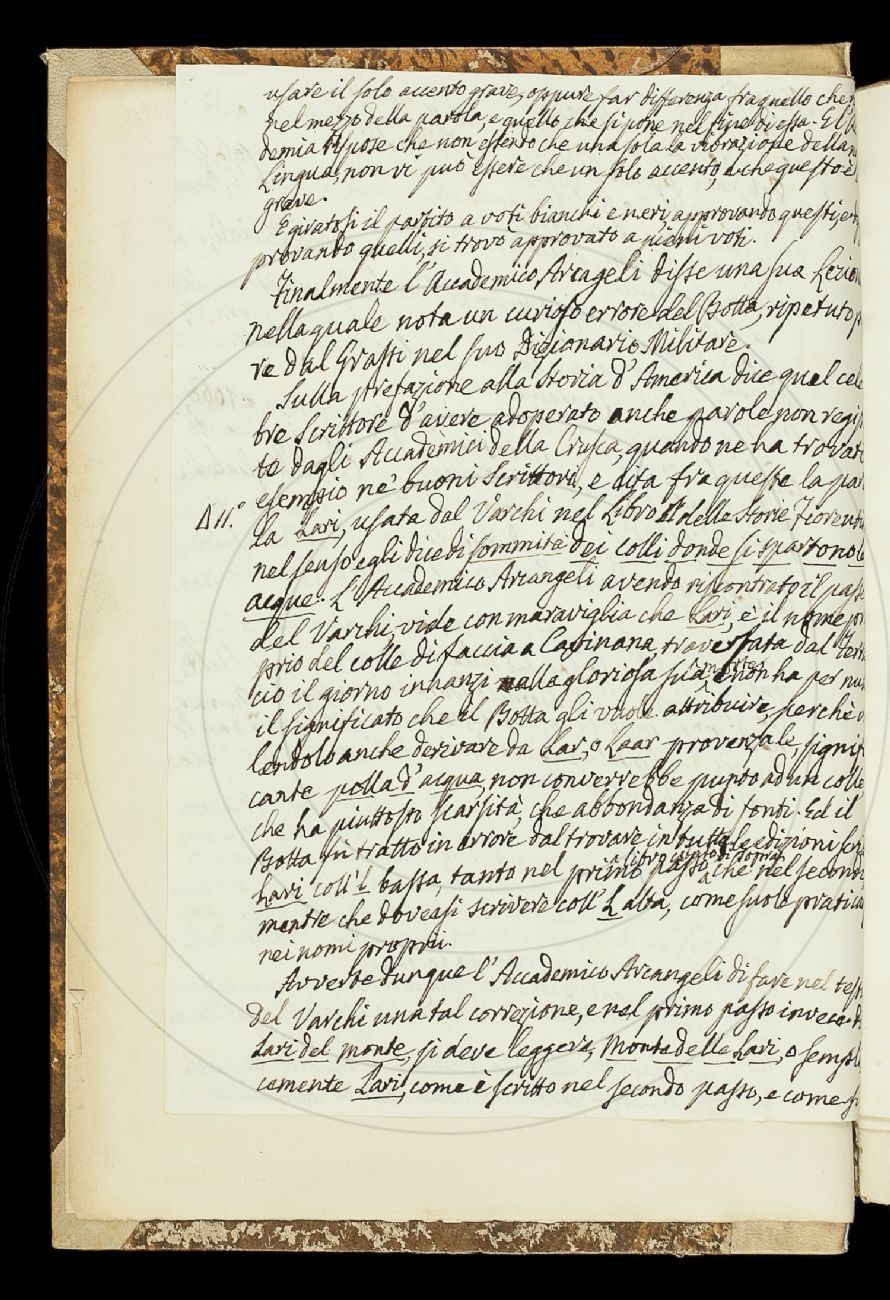 usare il solo accento grave, oppure far differenza fra quello che
nel mezzo della parola, e quello che si pone nel fine di essa. E l'
demia rispose che non essendo che una sola la vibrazione della
Lingua, non vi può essere che un solo accento, e che questo è
grave.
E giratosi il partito a voti bianchi e neri, approvando questi, e
provando quelli, si trovò approvato a pieni voti.
Finalmente l'Accademico Arcageli disse una sua Lezion
nella quale nota un curioso errore del Botta, ripetuto p
re dal Grassi nel suo Dizionario Militare.
Sulla prefazione alla storia d'America dice quel cele
bre Scrittore d'avere adoperato anche parole non regis
te dagli Accademici della Crusca, quando ne ha trovat
esempio ne' buoni Scrittori, e cita fra queste la par
Δ 11.° la Lari, usata dal Varchi nel Libro delle Storie Fiorenti
nel senso egli dice di sommità dei colli donde si spartono le
acque. L'Accademico Arcangeli avendo riscontrato il passo
del Varchi, vide con maraviglia che Lari, è il nome pro
prio del colle di faccia a Cavinana, traversata dal Ferru
cio il giorno innanzi alla gloriosa sua morte, e non ha per nul
il significato che il Botta gli vuole attribuire, perchè v
lendolo anche derivare da Lar, o Laar provenzale, signifi
cante polla d'acqua, non converrebbe punto ad un colle
che ha piuttosto scarsità, che abbondanza di fonti. Ed il
Botta fu tratto in errore dal trovare in tutte le edizioni scri
Lari coll'l bassa, tanto nel primo passo, libro citato di sopra che nel second
mentre che doveasi scrivere coll'L alta, come suole pratica
nei nomi proprii.
Avverte dunque l'Accademico Arcangeli di fare nel test
del Varchi una tal correzione, e nel primo passo invece d
Lari del monte, si deve leggere, Monte delle Lari, o sempli
cemente Lari, come è scritto nel secondo passo, e come s